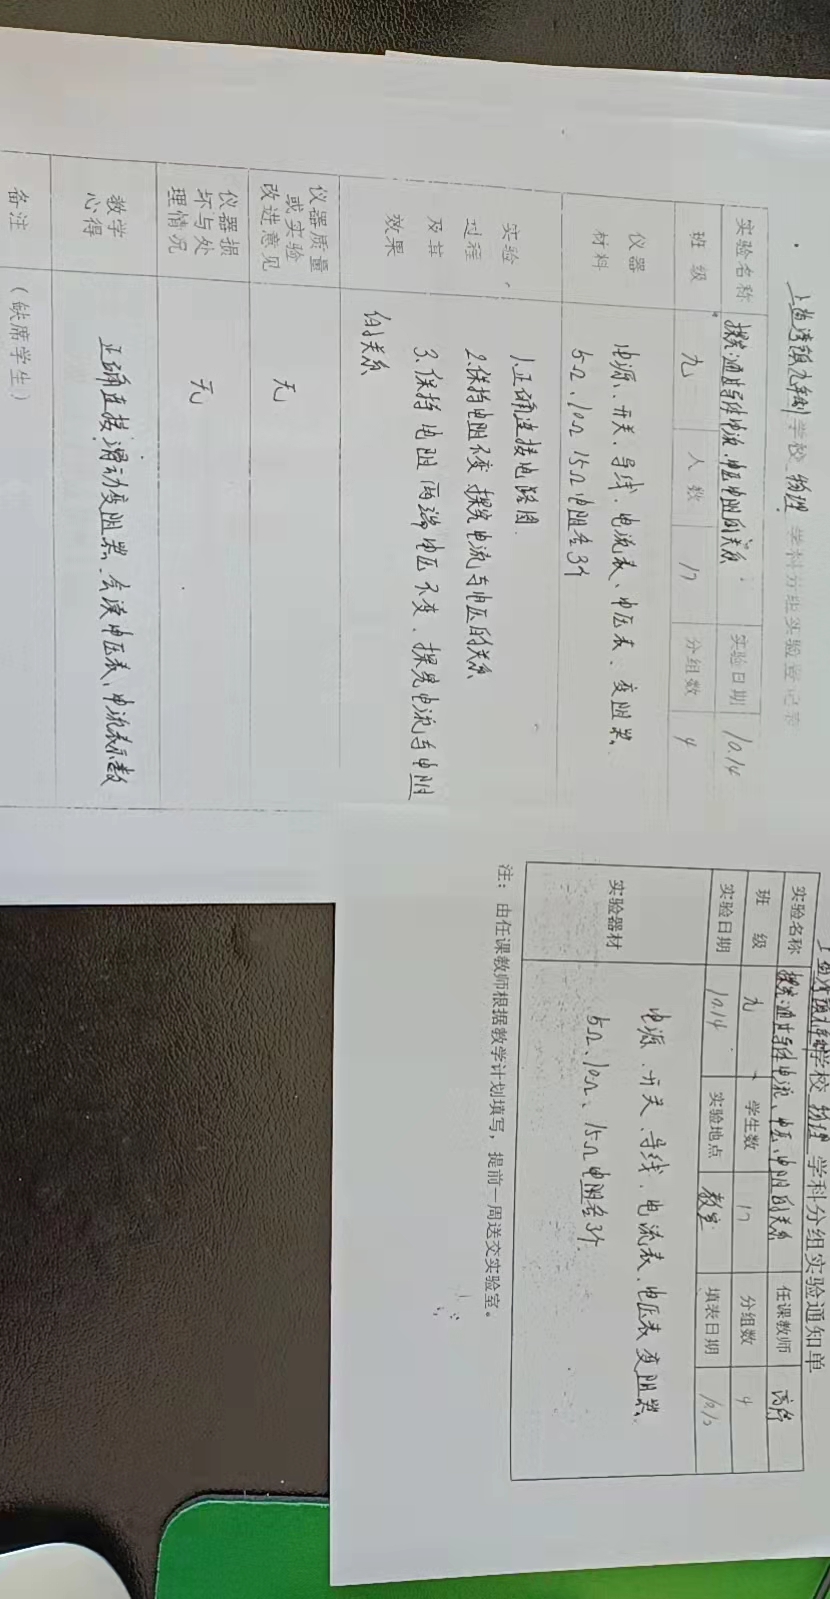 上盐湾镇九年制学校 物理 学科分组实验登记表
实验名称 探究通过导体电流、电压电阻的关系 实验日期 10.14
班 级 九 人 数 17 分组数 4
仪器材料
电源、开关、导线、电流表、电压表、变阻器、
5Ω、10Ω 15Ω电阻各3个
实验过程及其效果
1.正确连接电路图.
2.保持电阻不变 探究电流与电压的关系
3.保持电阻两端电压不变、探究电流与电阻
的关系
仪器质量或实验改进意见 无
仪器损坏与处理情况 无
教学心得 正确连接滑动变阻器、会读电压表、电流表示数
备注 (缺席学生)
上盐湾镇九年制学校 物理 学科分组实验通知单
实验名称 探究通过导体电流、电压、电阻的关系 任课教师
班 级 九 学生数 17 分组数 4
实验日期 10.14 实验地点 教室 填表日期
实验器材
电源、开关、导线、电流表、电压表 变阻器.
5Ω、10Ω、15Ω电阻各3个.
注：由任课教师根据教学计划填写，提前一周送交实验室。